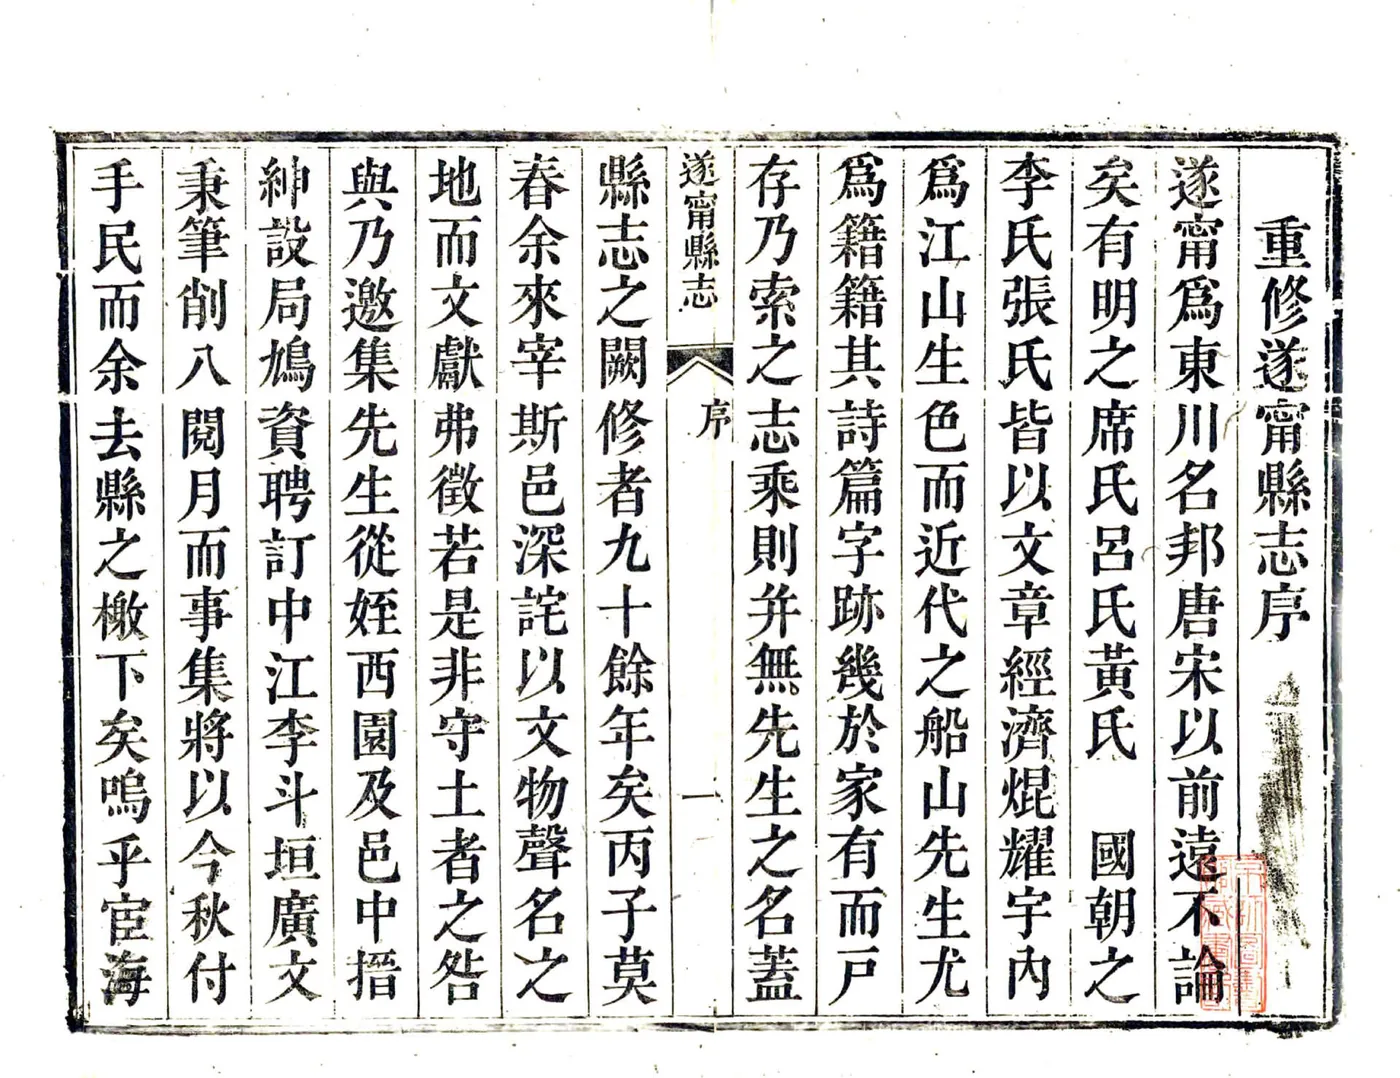 重修遂甯縣志序
遂甯爲東川名邦唐宋以前遠不論
矣有明之席氏呂氏黃氏　國朝之
李氏張氏皆以文章經濟焜耀宇內
爲江山生色而近代之船山先生尤
爲籍籍其詩篇字跡幾於家有而戸
存乃索之志乘則幷無先生之名蓋
遂甯縣志　序　一
縣志之闕修者九十餘年矣丙子莫
春余來宰斯邑深詫以文物聲名之
地而文獻弗徵若是非守土者之咎
與乃邀集先生從姪西園及邑中搢
紳設局鳩資聘訂中江李斗垣廣文
秉筆削八閱月而事集將以今秋付
手民而余去縣之檄下矣嗚乎宦海